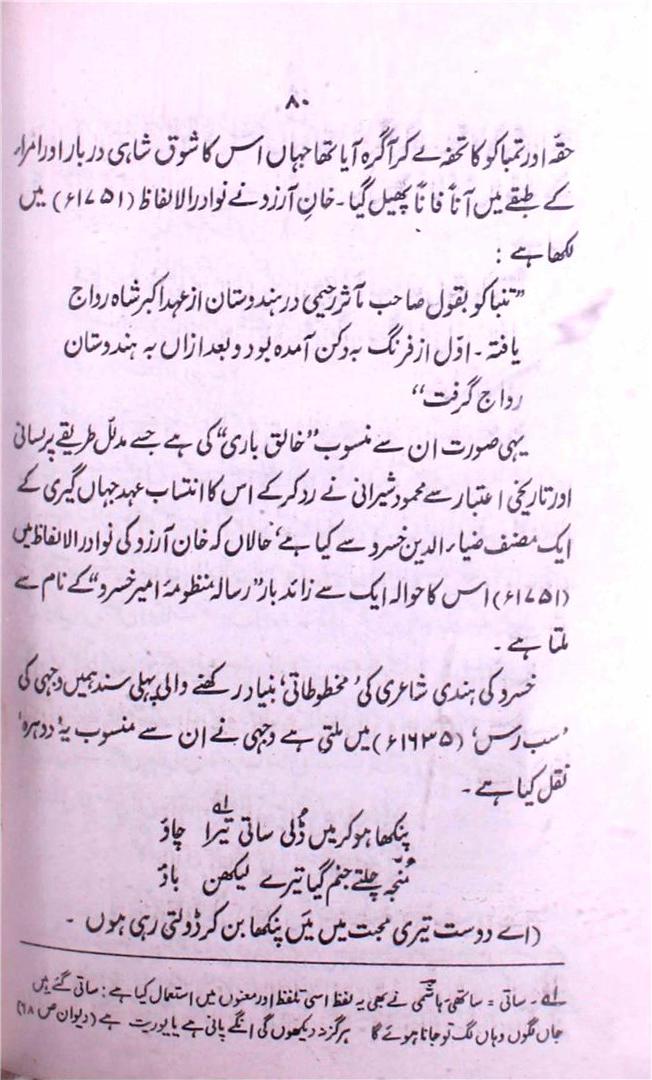 ۸۰
حقہ اور تمباکو کا تحفہ لے کر آگرہ آیا تھا جہاں اس کا شوق شاہی دربار اور امراء
کے طبقے میں آناً فاناً پھیل گیا۔ خانِ آرزو نے نوادر الالفاظ (۱۷۵۱ء) میں
لکھا ہے :
”تنباکو بقول صاحب مآثر رحیمی در ہندوستان از عہد اکبر شاہ رواج
یافتہ۔ اوّل از فرنگ بہ دکن آمدہ بود و بعد ازاں بہ ہندوستان
رواج گرفت“
یہی صورت ان سے منسوب ”خالق باری“ کی ہے جسے مدلّل طریقے پر لسانی
اور تاریخی اعتبار سے محمود شیرانی نے رد کر کے اس کا انتساب عہد جہاں گیری کے
ایک مصنف ضیاء الدین خسرو سے کیا ہے، حالاں کہ خان آرزو کی نوادر الالفاظ میں
(۱۷۵۱ء) اس کا حوالہ ایک سے زائد بار ”رسالہ منظومۂ امیر خسرو“ کے نام سے
ملتا ہے۔
خسرو کی ہندی شاعری کی ’مخطوطاتی‘ بنیاد رکھنے والی پہلی سند ہمیں وجہی کی
’سب رس‘ (۱۶۳۵ء) میں ملتی ہے وجہی نے ان سے منسوب یہ ’دوہرہ‘
نقل کیا ہے۔
پنکھا ہو کر میں ڈُلی ساتی تیرا چاؤ
مُنجہ جلتے جنم گیا تیرے لیکھن باؤ
(اے دوست تیری محبت میں میَں پنکھا بن کر ڈولتی رہی ہوں ۔
لے۔ ساتی = ساتھی۔ ہاشمی نے بھی یہ لفظ اسی تلفظ اور معنوں میں استعمال کیا ہے : ساتی گئے ہیں
جاں لگوں وہاں لگ تو جانا ہوئے گا ہرگز نہ دیکھوں گی انگے پانی ہے یا پوریت ہے (دیوان ص ۶۸)